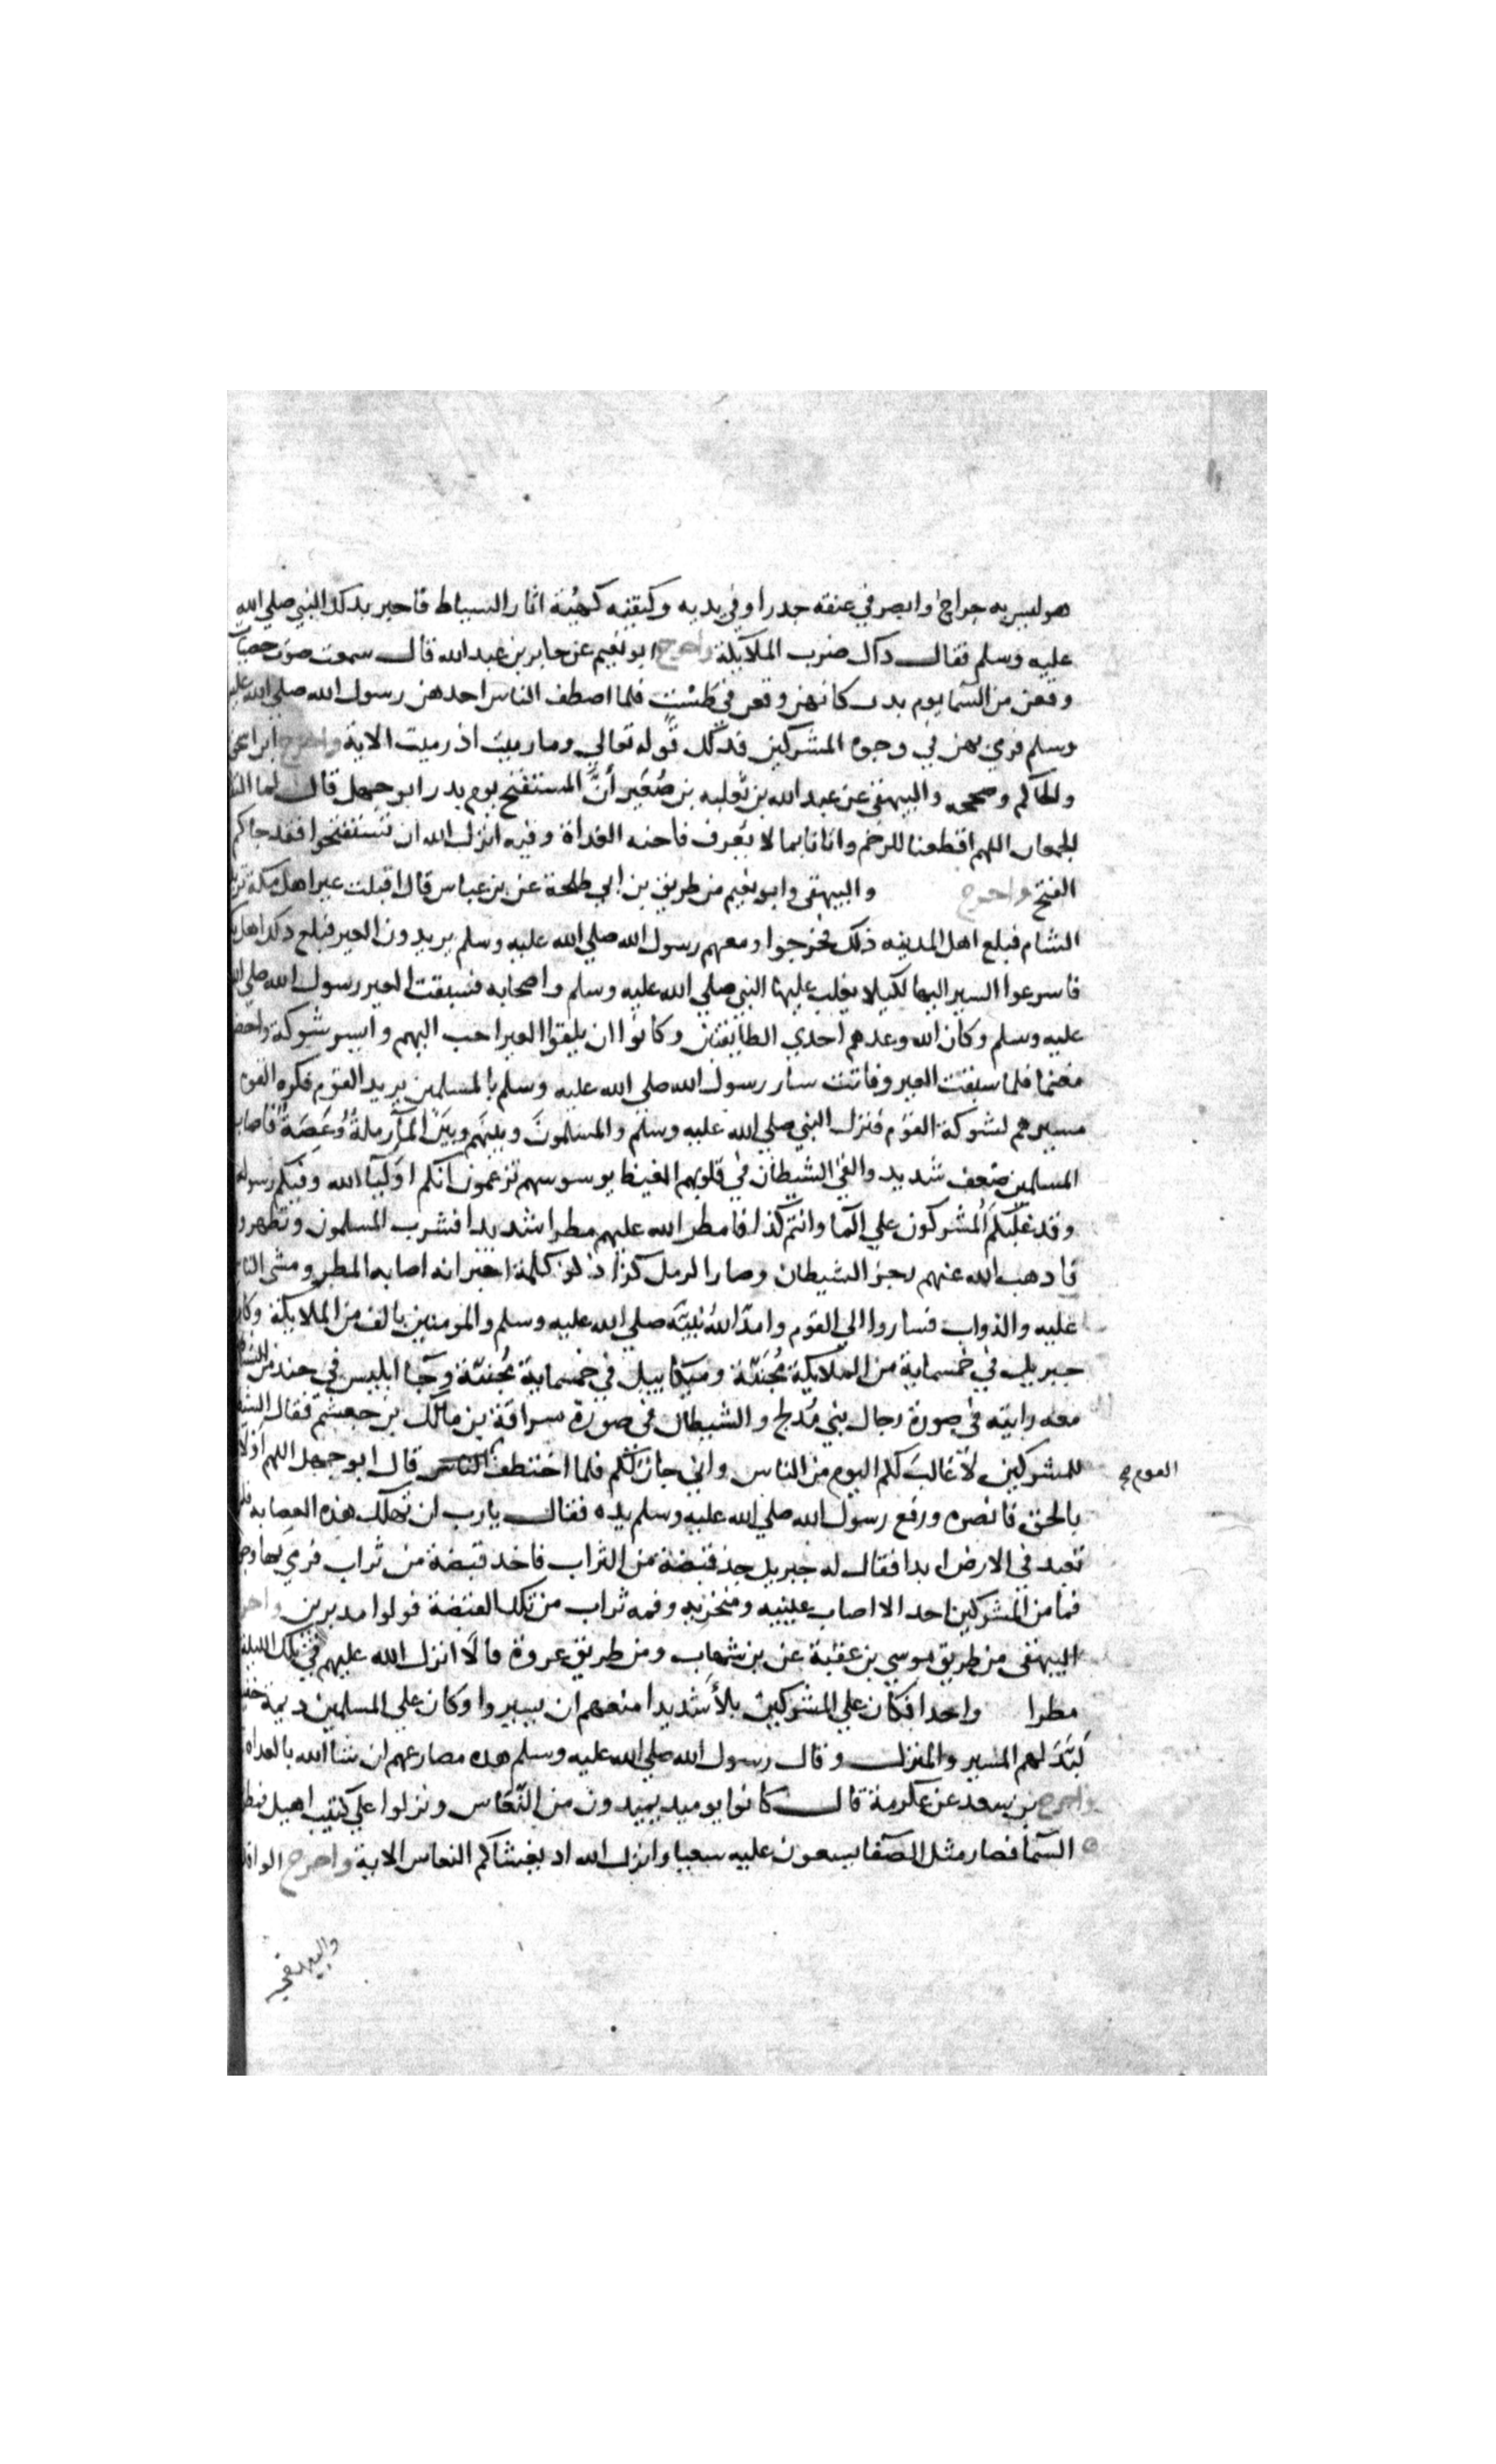 هو ليس به جراح وابصر في عنقه جدرا وفي يديه وكتفيه كهيئة اثار السياط فاخبر بذلك النبي صلي الله
عليه وسلم فقال ذاك ضرب الملايكة واخرج ابو نعيم عن جابر بن عبد الله قال سمعت صوت حصيات
وقعن من السما يوم بدر كانهن وقعن في طست فلما اصطف الناس اخدهن رسول الله صلي الله عليه
وسلم فرمي بهن في وجوه المشركين فذلك قوله تعالي وما رميت اذ رميت الاية واخرج ابن اسحق
والحاكم وصححه والبيهقي عن عبد الله بن ثعلبه بن صُعَير أنَّ المستفتح يوم بدر ابو جهل قال لما التقا
الجمعان اللهم اقطعنا للرحم واتانا بما لا يعرف فاحنه الغداة وفيه انزل الله ان تستفتحوا فقد جاكم
الفتح واخرج والبيهقي وابو نعيم من طريق بن ابي طلحة عن بن عباس قال اقبلت عير اهل مكة تريد
الشام فبلع اهل المدينه ذلك فخرجوا ومعهم رسول الله صلي الله عليه وسلم يريدون العير فبلع ذلك اهل
فاسرعوا السير اليها لكيلا يغلب عليها النبي صلي الله عليه وسلم واصحابه فسبقت العير رسول الله صلي الله
عليه وسلم وكان الله وعدهم احدي الطايفتين وكانوا ان يلقوا العير احب اليهم وايسر شوكة واحضر
مغنما فلما سبقت العير وفاتت سار رسول الله صلي الله عليه وسلم بالمسلمين يريد القوم فكره القوم
مسيرهم لشوكة القوم فنزل النبي صلي الله عليه وسلم والمسلمون وبينهم وبين المآ رملةٌ وَعَصَةٌ فاصاب
المسلمين ضعف شديد والقي الشيطان في قلوبهم الغيظ يوسوسهم تزعمون انكم اوليآ الله وفيكم رسوله
وقد غلبكم المشركون علي الما وانتم كذا فامطر الله عليهم مطرا شديدا فشرب المسلمون وتطهروا
فادهب الله عنهم رجز الشيطان وصار الرمل كزا ذكر كلمة اخبر انه اصابه المطر ومشي الناس
عليه والدواب فساروا الي القوم وامدّ اللهُ نبيَّه صلي الله عليه وسلم والمومنين بالف من الملايكة وكان
جبريل في خمسماية من الملايكة مُجَنِّبَة وميكاييل في خمسماية مُجنبّة وجآ ابليس في جند من الشياطين
معه رايته في صورة رجال بني مُدلج والشيطان في صورة سراقة بن مالك بن جعشم فقال الشيطان
للمشركين لا غالبَ لكم اليوم من الناس واني جار لكم فلما اختطف الناس قال ابو جهل اللهم اولانا
القوم صح
بالحق فانصره ورفع رسول الله صلي الله عليه وسلم يده فقال يارب ان تهلك هذه العصابه فلن
تعبد في الارض ابدا فقال له جبريل خذ قبضة من التراب فاخد قبضة من تراب فرمي بها وجوههم
فما من المشركين احد الا اصاب عينيه ومنخريه وفمه تراب من تلك القبضة فولوا مدبرين واخرج
البيهقي من طريق موسي بن عقبة عن بن شهاب ومن طريق عروة قالا انزل الله عليهم في تلك الليلة
مطرا واحدا فكان علي المشركين بلأ شديدا منعهم ان يسيروا وكان علي المسلمين ديمة خفيفة
لَبَّدَ لهم المسير والمنزل وقال رسول الله صلي الله عليه وسلم هده مصارعهم ان شا الله بالغداة
واخرج بن سعد عن عكرمة قال كانوا يوميد يميدون من النعاس ونزلوا علي كثيب اهيل فمطرت
السما فصار مثل الصفا يسعون عليه سعيا وانزل الله اد يغشاكم النعاس الاية واخرج الواقدي
والبيهقي